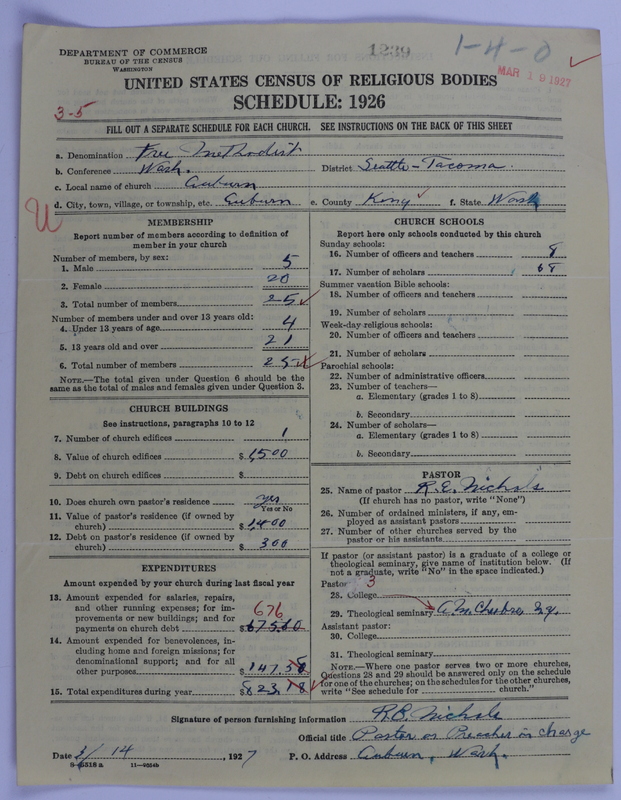 DEPARTMENT OF COMMERCE
BUREAU OF THE CENSUS
WASHINGTON
1239
1-4-0
MAR 19 1927
UNITED STATES CENSUS OF RELIGIOUS BODIES
SCHEDULE: 1926
3-5
FILL OUT A SEPARATE SCHEDULE FOR EACH CHURCH. SEE INSTRUCTIONS ON THE BACK OF THIS SHEET
a. Denomination Free Methodist
b. Conference Wash. District Seattle-Tacoma.
c. Local name of church Auburn
d. City, town, village, or township, etc. Auburn e. County King f. State Wash
U
MEMBERSHIP
Report number of members according to definition of
member in your church
Number of members, by sex:
1. Male 5
2. Female 20
3. Total number of members 25
Number of members under and over 13 years old:
4. Under 13 years of age 4
5. 13 years old and over 21
6. Total number of members 25
NOTE.—The total given under Question 6 should be
same as the total of males and females given under Question 3.
CHURCH BUILDINGS
See instructions, paragraphs 10 to 12
7. Number of church edifices 1
8. Value of church edifices $1,500
9. Debt on church edifices $
10. Does church own pastor's residence yes
Yes or No
11. Value of pastor's residence (if owned by
church) $1,400
12. Debt on pastor's residence (if owned by
church) $ 300
EXPENDITURES
Amount expended by your church during last fiscal year
13. Amount expended for salaries, repairs,
and other running expenses; for im-
provements or new buildings; and for
payments on church debt 676 $675.60
14. Amount expended for benevolences, in-
cluding home and foreign missions; for
denominational support; and for all
other purposes $147.58
15. Total expenditures during year $823.18
CHURCH SCHOOLS
Report here only schools conducted by this church
Sunday schools:
16. Number of officers and teachers 8
17. Number of scholars 68
Summer vacation Bible schools:
18. Number of officers and teachers
19. Number of scholars
Week-day religious schools:
20. Number of officers and teachers
21. Number of scholars
Parochial schools:
22. Number of administrative officers
23. Number of teachers—
a. Elementary (grades 1 to 8)
b. Secondary
24. Number of scholars—
a. Elementary (grades 1 to 8)
b. Secondary
PASTOR
25. Name of pastor R.E. Nichols
(If church has no pastor, write "None")
26. Number of ordained ministers, if any, em-
ployed as assistant pastors
27. Number of other churches served by the
pastor or his assistants
If pastor (or assistant pastor) is a graduate of a college or
theological seminary, give name of institution below. (If
not a graduate, write "No" in the space indicated.)
Pastor: 3
28. College
29. Theological seminary
Assistant pastor:
30. College
31. Theological seminary
NOTE.—Where one pastor serves two or more churches,
Questions 28 and 29 should be answered only on the schedule
for one of the churches; on the schedules for the other churches,
write "See schedule for church."
Signature of person furnishing information R.E. Nichols
Official title Pastor or Preacher in charge
Date 3/14, 1927 P. O. Address Auburn, Wash.
11-9554b